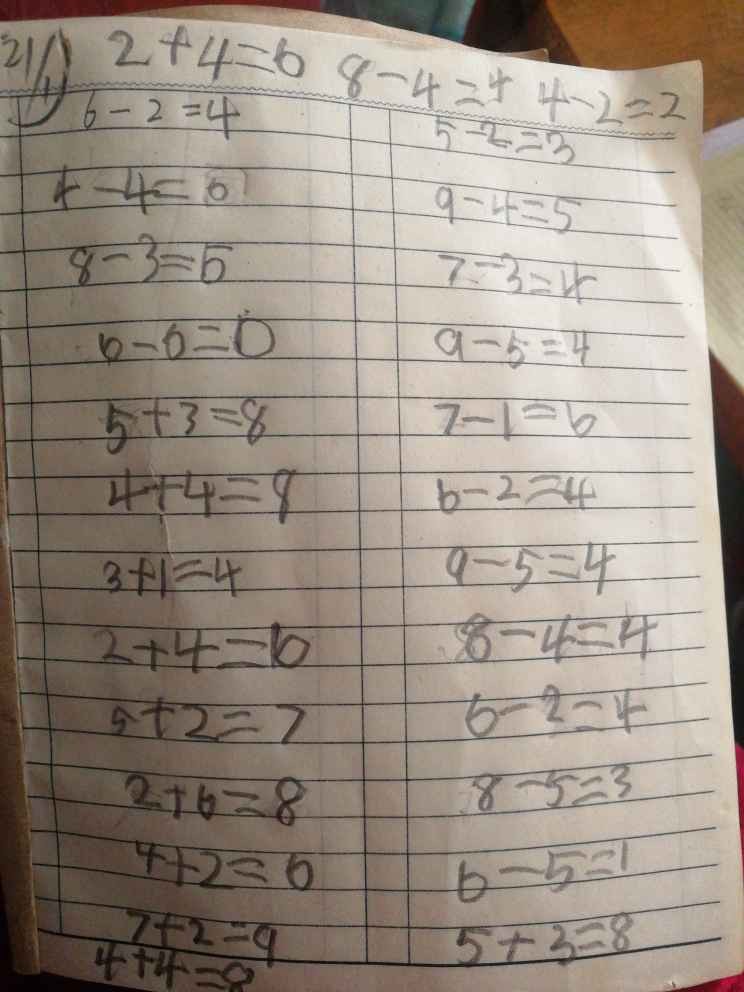 21/1 2+4=6 8-4=4 4-2=2
6-2=4
4-4=0
8-3=5
6-6=0
5+3=8
4+4=8
3+1=4
2+4=6
5+2=7
2+6=8
4+2=6
7+2=9
4+4=8
5-2=3
9-4=5
7-3=4
9-5=4
7-1=6
6-2=4
9-5=4
8-4=4
6-2=4
8-5=3
6-5=1
5+3=8